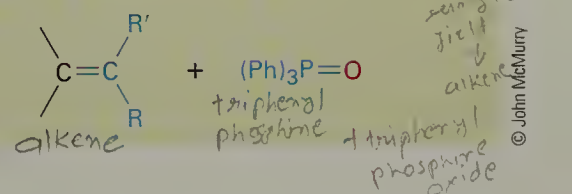 R'
C=C
R
+
(Ph)₃P=O
alkene
triphenyl
phosphine
yield
alkene
+ triphenyl
phosphine
oxide
© John McMurry